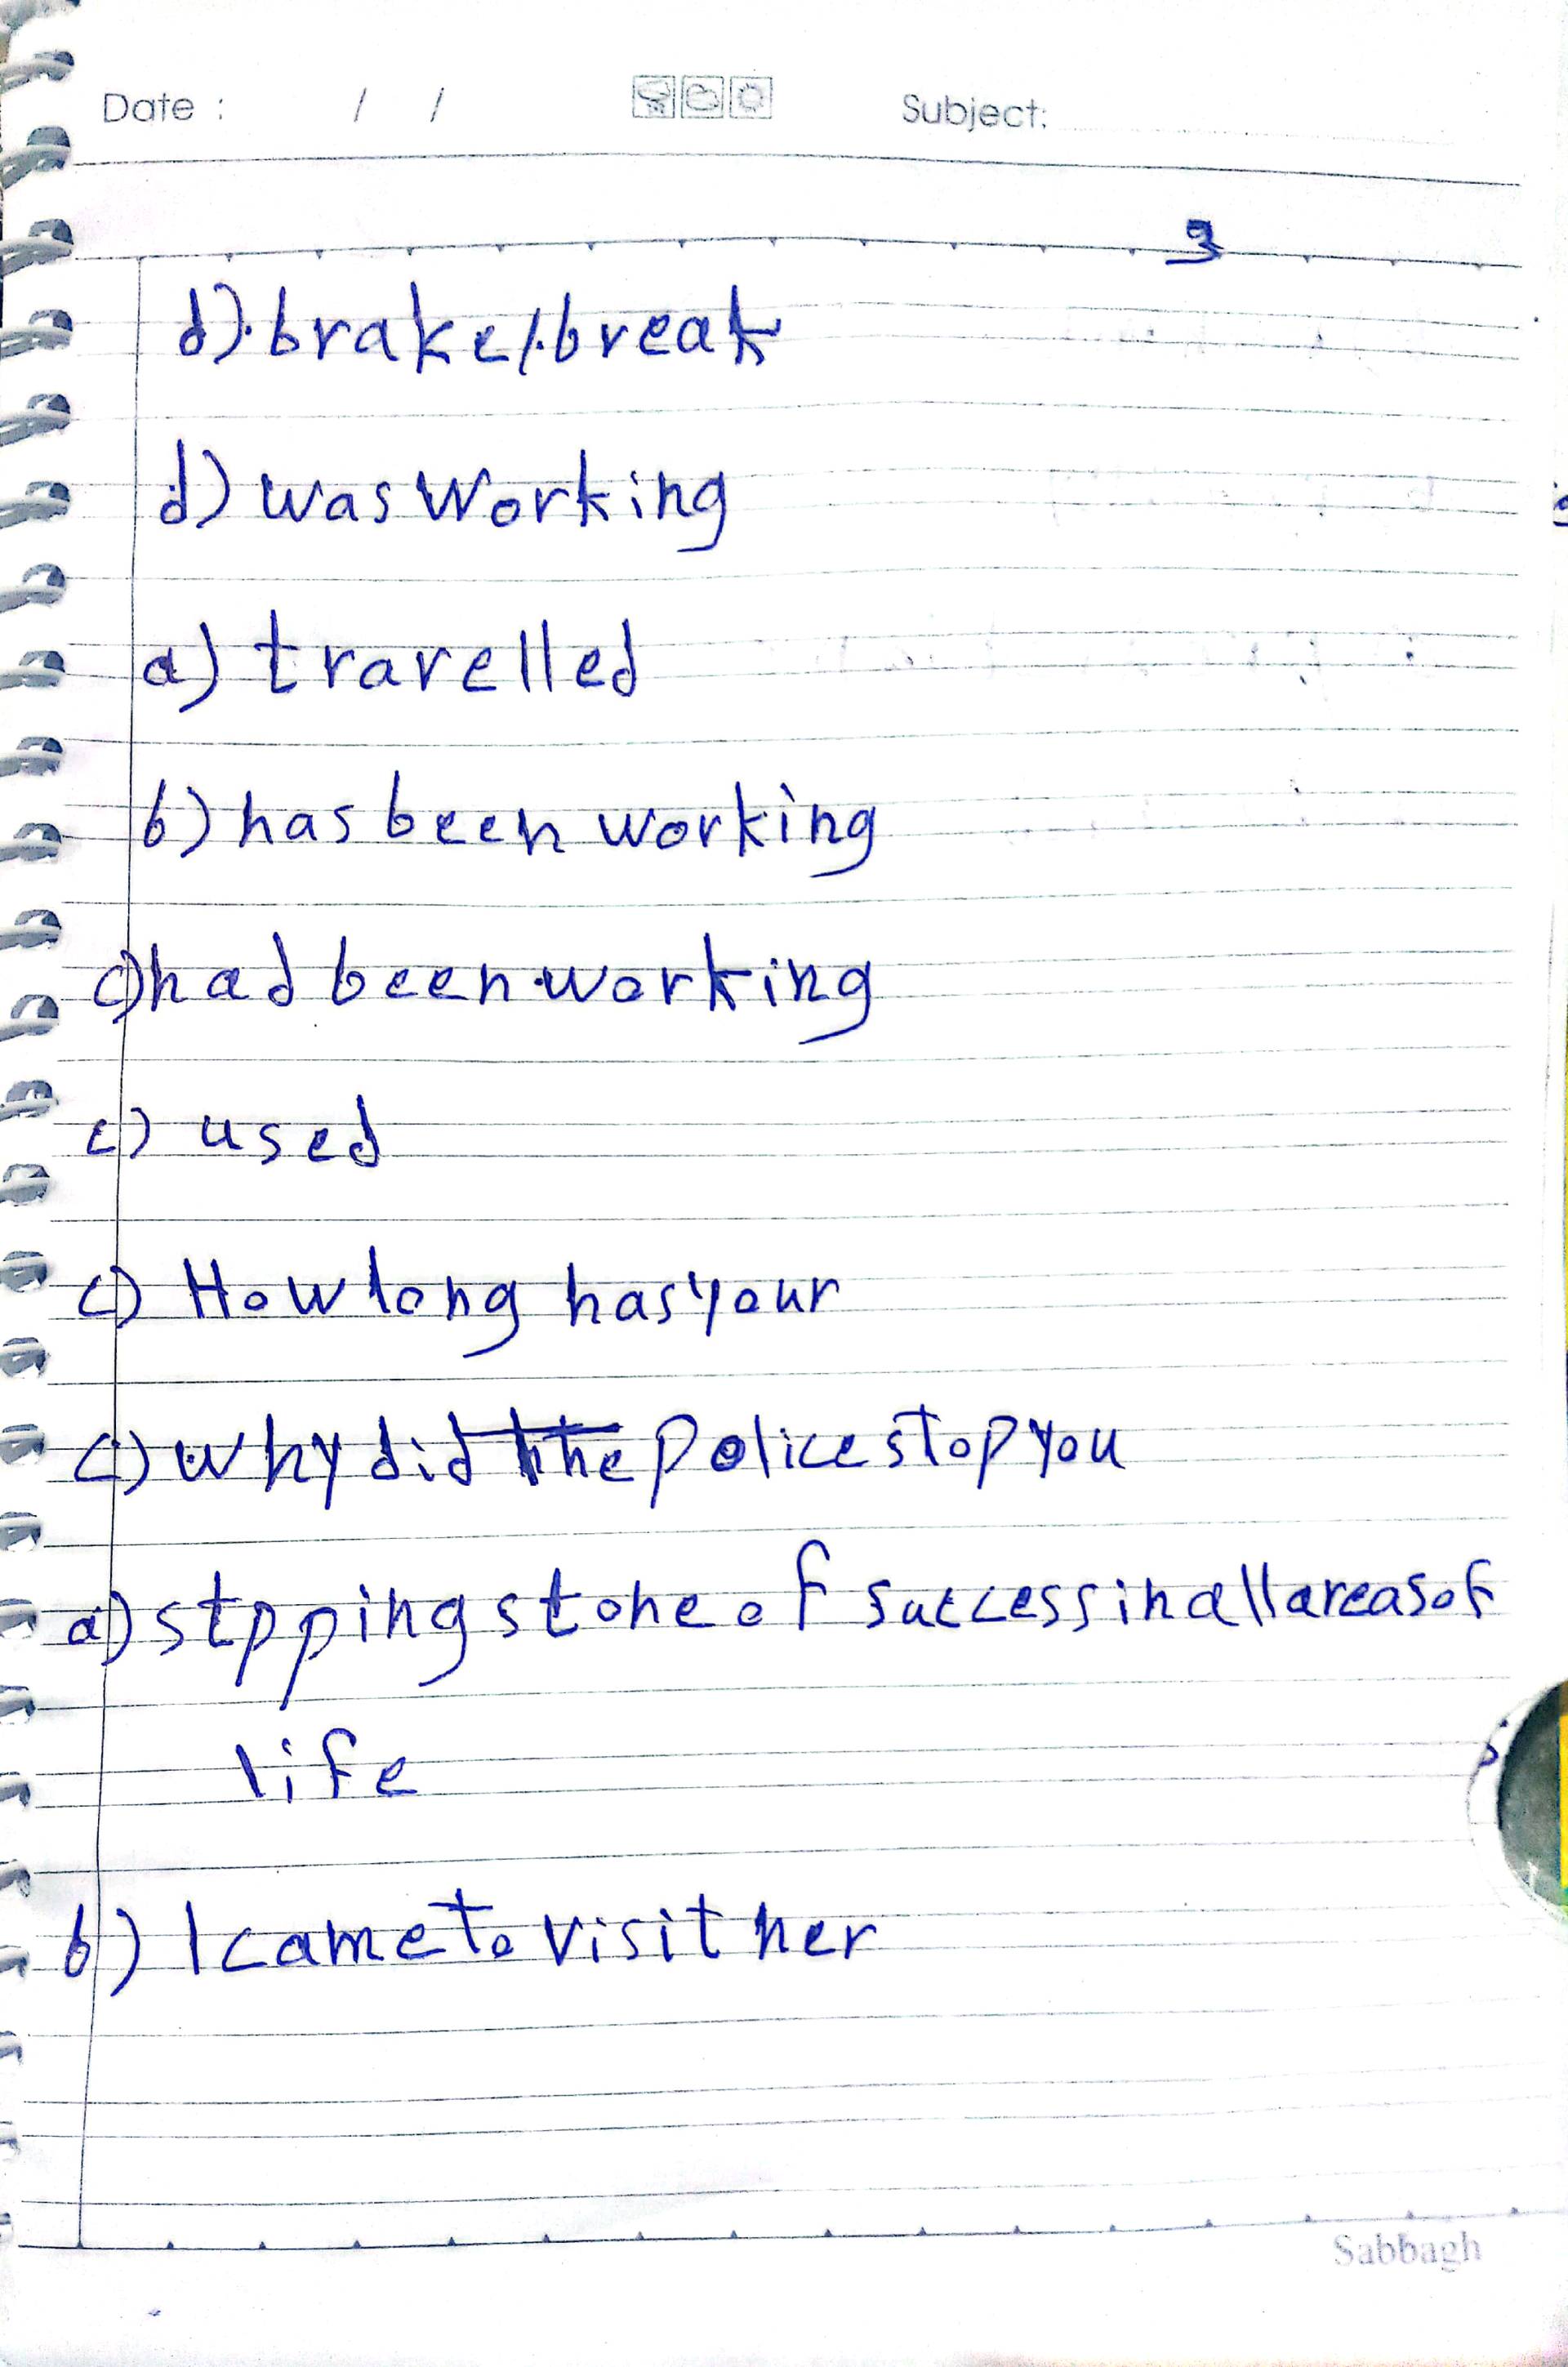 Date : / / Subject:
3
d) brake/break
d) was working
a) travelled
b) has been working
c) had been working
c) used
c) How long has your
c) why did the police stop you
a) stpping stone of success in all areas of
life
b) I came to visit her
Sabbagh